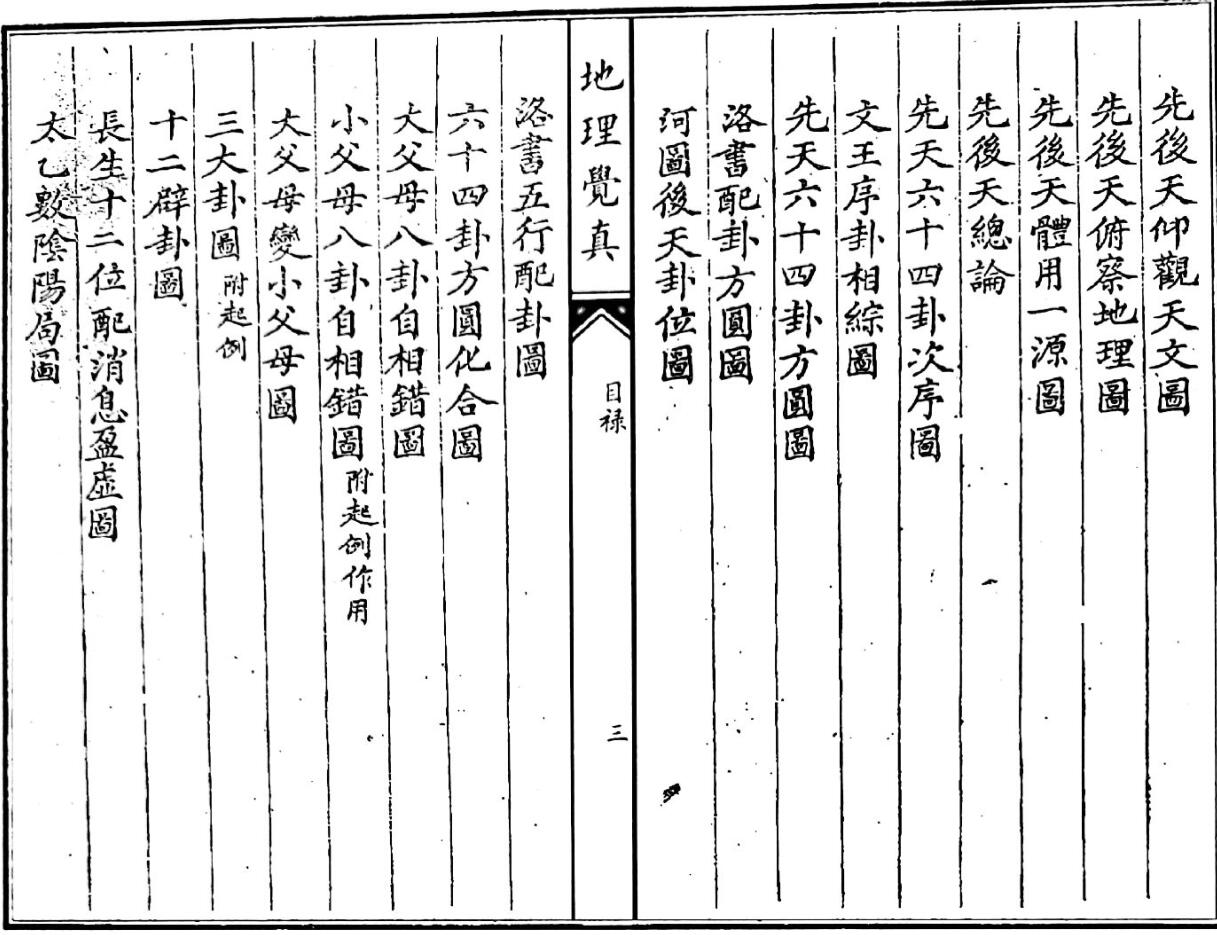 先後天仰觀天文圖
先後天俯察地理圖
先後天體用一源圖
先後天總論
先天六十四卦次序圖
文王序卦相綜圖
先天六十四卦方圓圖
洛書配卦方圓圖
河圖後天卦位圖
地理覺真
目禄
三
洛書五行配卦圖
六十四卦方圓化合圖
大父母八卦自相錯圖
小父母八卦自相錯圖 附起例作用
大父母變小父母圖
三大卦圖 附起例
十二辟卦圖
長生十二位配消息盈虛圖
太乙數陰陽局圖